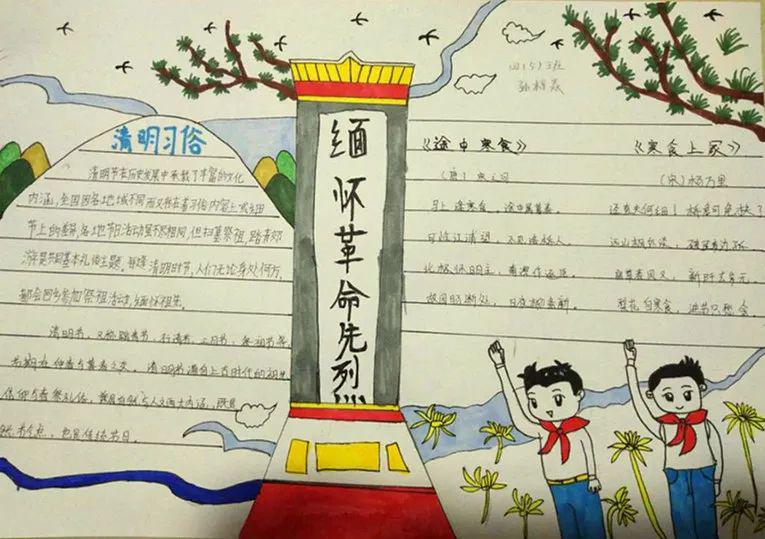 四(5)班
清明习俗
清明节在历史发展中承载了丰富的文化
内涵,全国因各地地域不同而又存在着习俗内容上或细节
节上的差异,各地节日活动虽不尽相同,但扫墓祭祖,踏青郊
游是共同基本礼俗主题。每逢清明时节,人们无论身处何方,
都会回乡参加祭祖活动,缅怀祖先。
清明节,又称踏青节,行清节,三月节,祭祖节等,
节期在仲春与暮春之交。清明节源自上古时代的祖先
信仰与春祭礼俗,
缅怀革命先烈
《途中寒食》
(唐)宋之问
马上逢寒食,途中属暮春。
可怜江浦望,不见洛桥人。
北极怀明主,南溟作逐臣。
故园肠断处,日夜柳条新。
《寒食上冢》
(宋)杨万里
迳直夫何细!桥危可免扶?
远山枫外淡,破屋麦边孤。
宿草春风又,新阡去岁无。
梨花自寒食,进节只愁余。